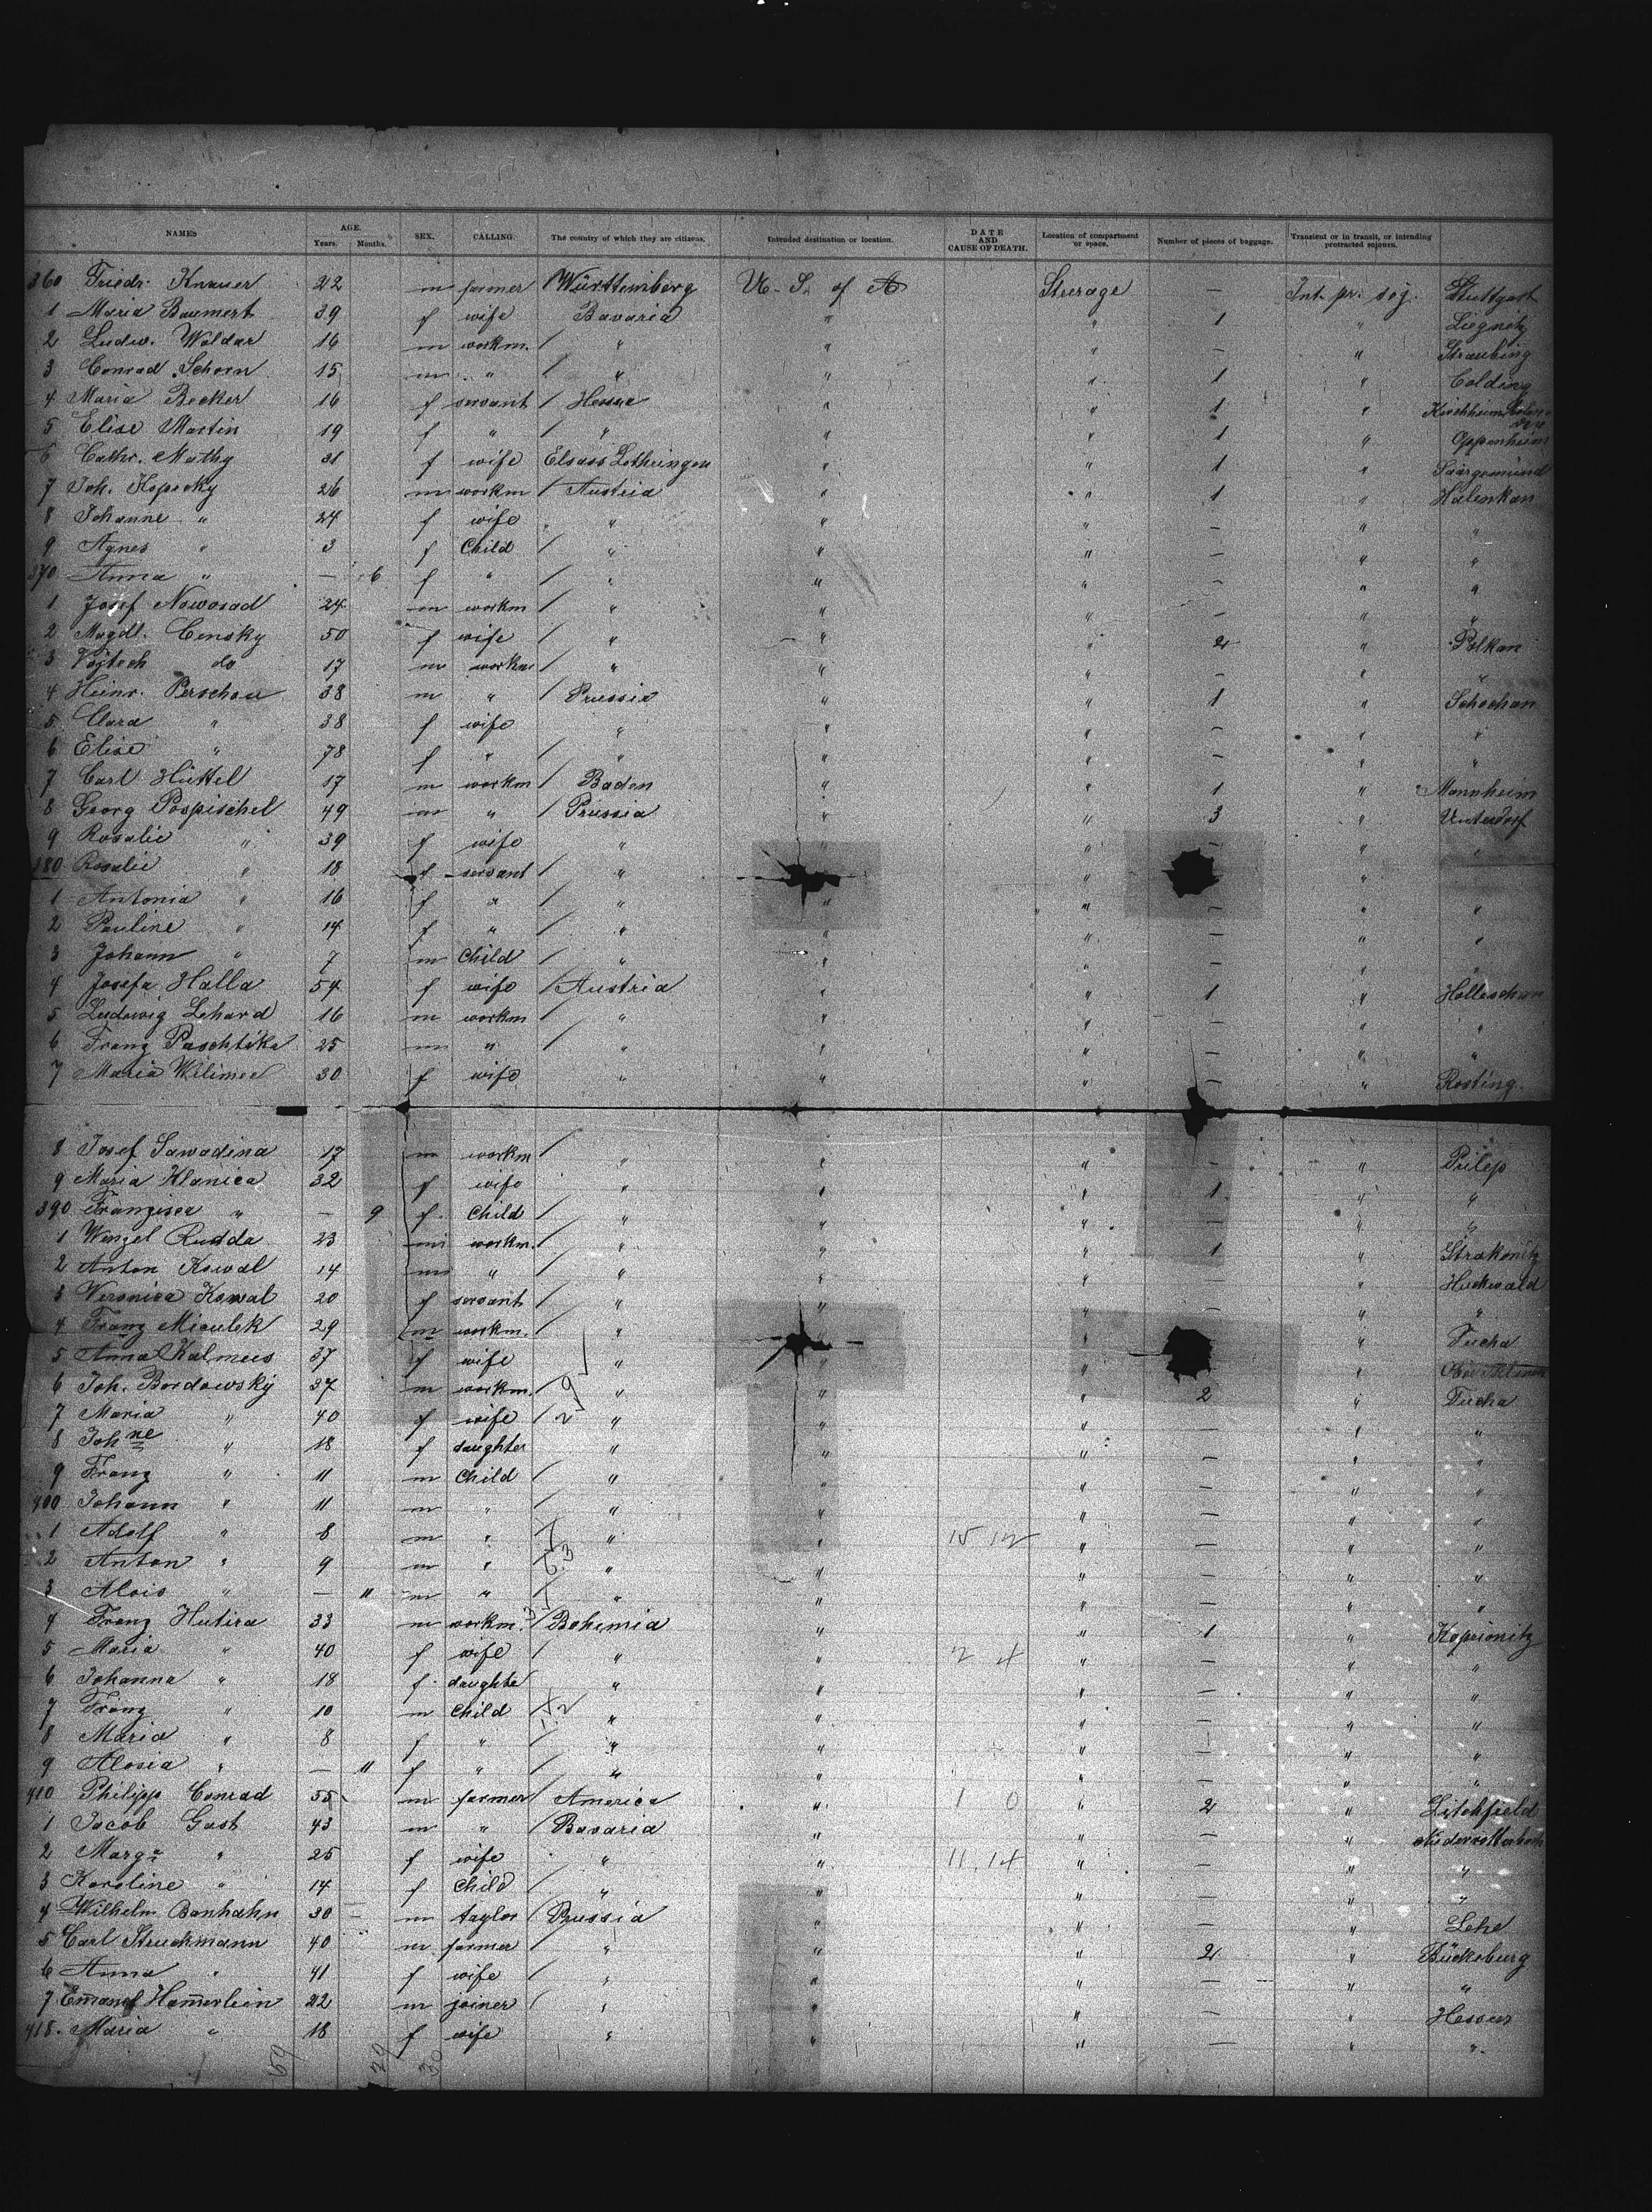 NAMES AGE. Years. Months. SEX. CALLING. The country of which they are citizens. Intended destination or location. DATE AND CAUSE OF DEATH. Location of compartment or space. Number of pieces of baggage. Transient or in transit, or intending protracted sojourn.
360 Friedr. Knauer 22 m farmer Württemberg U. S. of A Steerage — Int. pr. soj. Stuttgart
1 Maria Baumert 39 f wife Bavaria " " 1 " Liegnitz
2 Ludw. Waldar 16 m workm. " " " — " Straubing
3 Conrad Schorn 15 m " " " " 1 " Colding
4 Maria Becker 16 f servant Hesse " " 1 "
5 Elise Martin 19 f " " " " 1 " Oppenheim
6 Cathr. Mathy 31 f wife Elsass Lothringen " " 1 " Saargemünd
7 Joh. Kopecky 26 m workm Austria " " 1 " Halenkau
8 Johanne " 24 f wife " " " — " "
9 Agnes " 3 f Child " " " — " "
370 Anna " — 6 f " " " " — " "
1 Josef Nowosad 24 m workm " " " — " "
2 Magdl. Censky 50 f wife " " " 2 " Polkan
3 Vojtech do 17 m workm " " " — " "
4 Heinr. Perschau 38 m " Prussia " " 1 " Schochan
5 Clara " 38 f wife " " " — " "
6 Elise " 78 f " " " " — " "
7 Carl Hüttel 17 m workm Baden " " 1 " Mannheim
8 Georg Pospischel 49 m " Prussia " " 3 "
9 Rosalie " 39 f wife " " " — " "
380 Rosalie " 18 f servant " " "
1 Antonia " 16 f " " " " — " "
2 Pauline " 14 f " " " " — " "
3 Johann " 7 m Child " " " — " "
4 Josefa Halla 54 f wife Austria " " 1 " Holleschau
5 Ludwig Lehard 16 m workm " " " — " "
6 Franz Paschtika 25 m " " " " — " "
7 Maria Wilimec 30 f wife " " " — " Rosting.
8 Josef Sawadina 17 m workm " " " — " Prilep
9 Maria Klanica 32 f wife " " " 1 " "
390 Franzisca " — 9 f Child " " " — " "
1 Wenzel Rudda 23 m workm. " " " 1 " Strakonitz
2 Anton Kowal 14 m " " " " — " Huckwald
3 Veronica Kowal 20 f servant " " " — " "
4 Franz Miculek 29 m workm. " " " " Ticha
5 Anna Kalmus 37 f wife " " " "
6 Joh. Bordowsky 37 m workm. " " " 2 " Ticha
7 Maria " 40 f wife " " " — " "
8 Johne " 18 f daughter " " " — " "
9 Franz " 11 m Child " " " — " "
400 Johann " 11 m " " " " — " "
1 Adolf " 8 m " " " 15 12 " — " "
2 Anton " 9 m " " " " — " "
3 Alois " — 11 m " " " " — " "
4 Franz Hutira 33 m workm. Bohemia " " 1 "
5 Maria " 40 f wife " " 2 4 " — " "
6 Johanna " 18 f daughte " " " — " "
7 Franz " 10 m Child " " " — " "
8 Maria " 8 f " " " " — " "
9 Alosia " — 11 f " " " " — " "
410 Philipp Conrad 55 m farmer America " 1 0 " 2 " Litchfield
1 Jacob Gast 43 m " Bavaria " " — "
2 Marga " 25 f wife " " 11. 14 " — " "
3 Karoline " 14 f Child " " " — " "
4 Wilhelm Banhahn 30 m taylor Prussia " " — " Lehe
5 Carl Struckmann 40 m farmer " " " 2 " Bückeburg
6 Anna " 41 f wife " " " — " "
7 Emanuel Hamerlein 22 m joiner " " " — "
418. Maria " 18 f wife " " " — " "
59 29 30